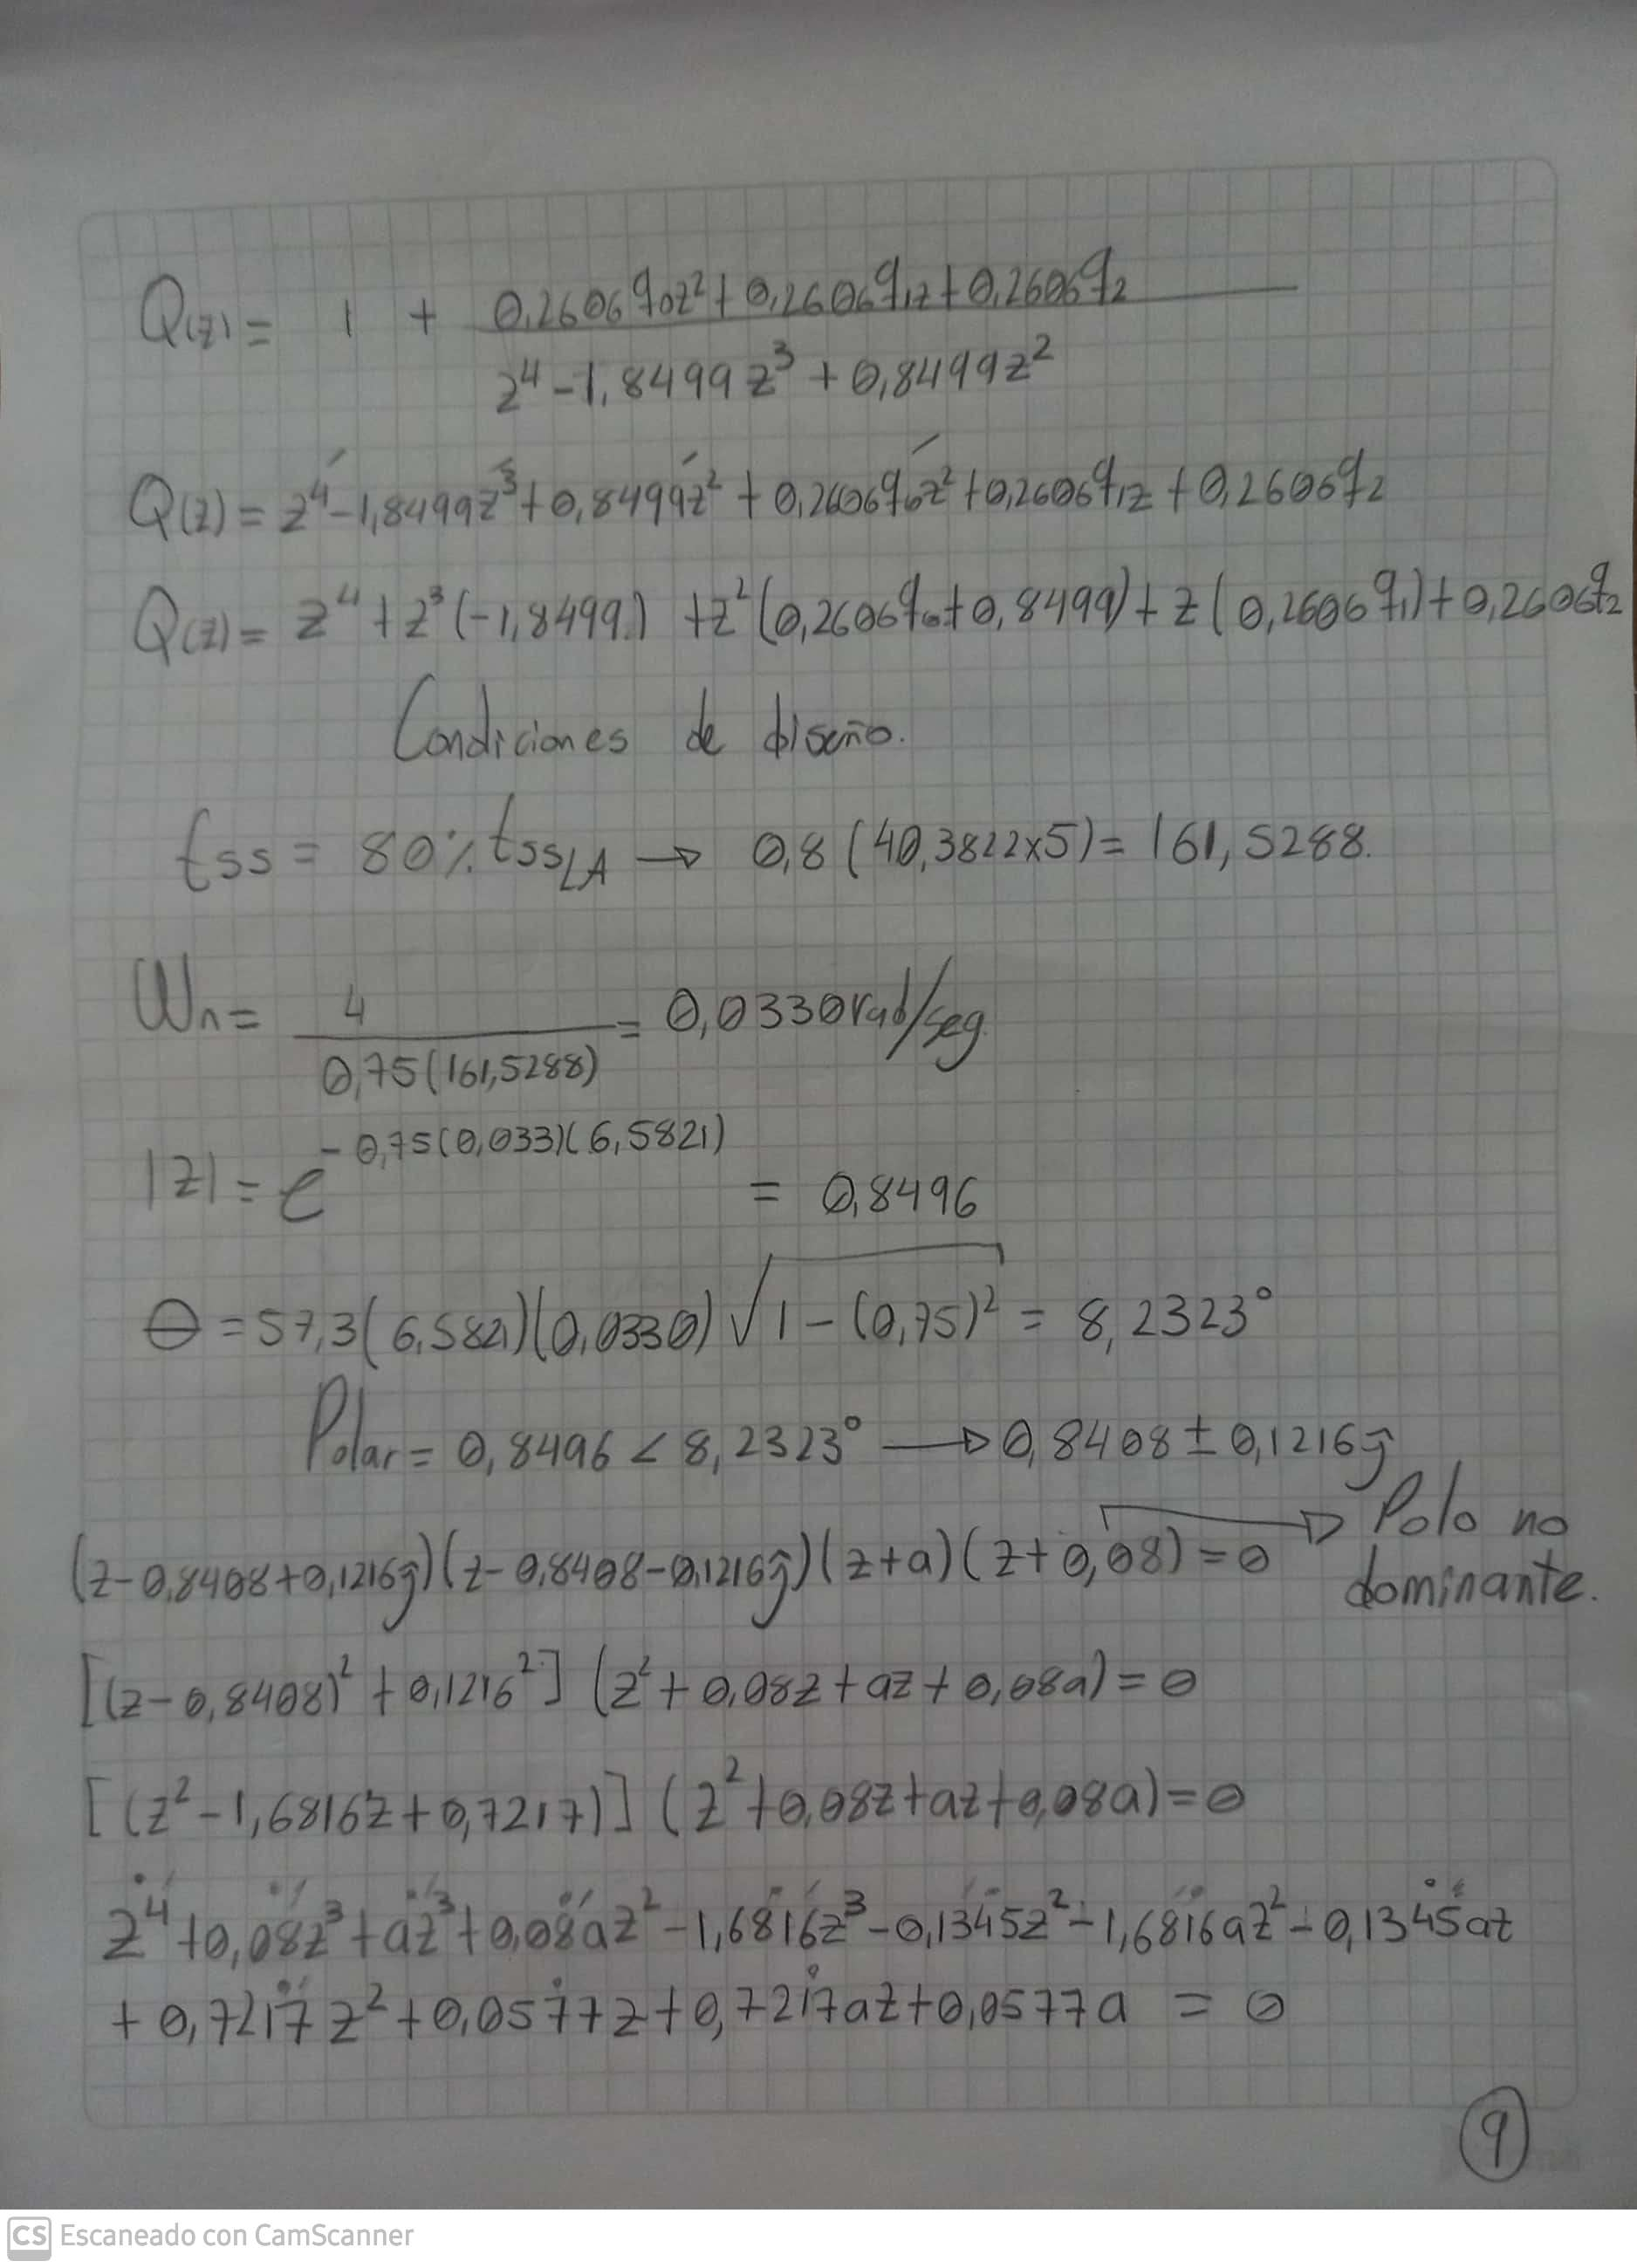 Q(z) = 1 + 0,2606q0z² + 0,2606q1z + 0,2606q2
z⁴ - 1,8499z³ + 0,8499z²
Q(z) = z⁴ - 1,8499z³ + 0,8499z² + 0,2606q0z² + 0,2606q1z + 0,2606q2
Q(z) = z⁴ + z³(-1,8499) + z²(0,2606q0 + 0,8499) + z(0,2606q1) + 0,2606q2
Condiciones de diseño.
tss = 80% tssLA → 0,8(40,3822x5) = 161,5288.
Wn = 4 = 0,0330 rad/seg.
0,75(161,5288)
-0,75(0,033)(6,5821)
|z| = e = 0,8496
θ = 57,3(6,5821)(0,0330)√1-(0,75)² = 8,2323°
Polar = 0,8496 < 8,2323° → 0,8408 ± 0,1216j
(z-0,8408+0,1216j)(z-0,8408-0,1216j)(z+a)(z+0,08) = 0 → Polo no
dominante.
[(z-0,8408)² + 0,1216²] (z² + 0,08z + az + 0,08a) = 0
[(z² - 1,6816z + 0,7217)] (z² + 0,08z + az + 0,08a) = 0
z⁴ + 0,08z³ + az³ + 0,08az² - 1,6816z³ - 0,1345z² - 1,6816az² - 0,1345az
+ 0,7217z² + 0,0577z + 0,7217az + 0,0577a = 0
9
CS Escaneado con CamScanner